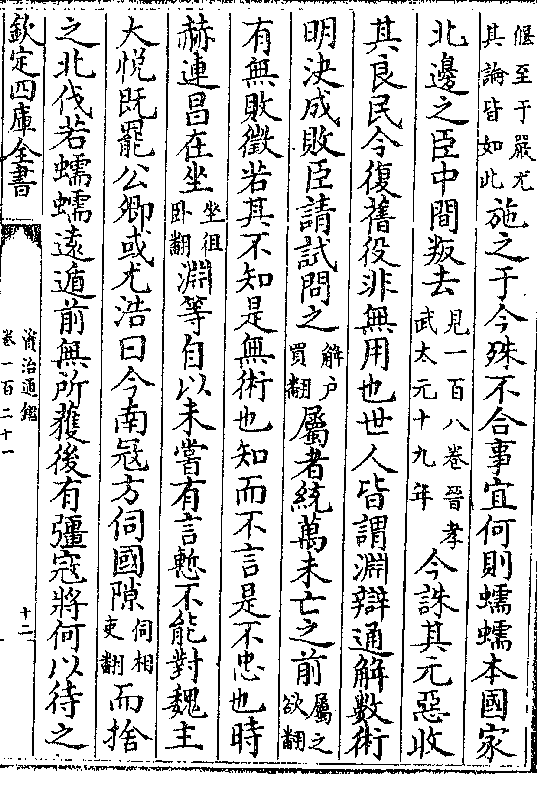 偃至于嚴尤其論皆如此施之于今殊不合事宜何則蠕蠕本國家
北邊之臣中間叛去見一百八卷晉孝武太元十九年今誅其元惡收
其良民令復舊役非無用也世人皆謂淵辯通解數術
明決成敗臣請試問之解户買翻屬者統萬未亡之前屬之欲翻
有無敗徵若其不知是無術也知而不言是不忠也時
赫連昌在坐坐徂卧翻淵等自以未嘗有言慙不能對魏主
大悅既罷公卿或尤浩曰今南寇方伺國隙伺相吏翻而捨
之北伐若蠕蠕遠遁前無所獲後有彊寇將何以待之
欽定四庫全書
資治通鑑
卷一百二十一
十二